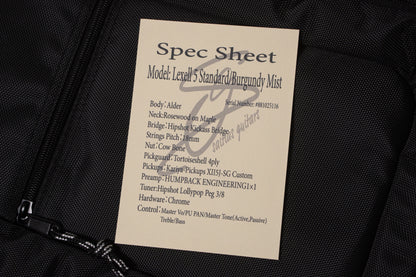 Spec Sheet
Model: Lexell 5 Standard/Burgundy Mist
Serial Number: #081025116
Body：Alder
Neck:Rosewood on Maple
Bridge：Hipshot Kickass Bridge
Strings Pitch：18mm
Nut：Cow Bone
Pickguard：Tortoiseshell 4ply
Pickups：Kariya Pickups XII5J-SG Custom
Preamp：HUMPBACK ENGINEERING1×1
Tuner:Hipshot Lollypop Peg 3/8
Hardware：Chrome
Control：Master Vo/PU PAN/Master Tone(Active,Passive)
Treble/Bass
guitars